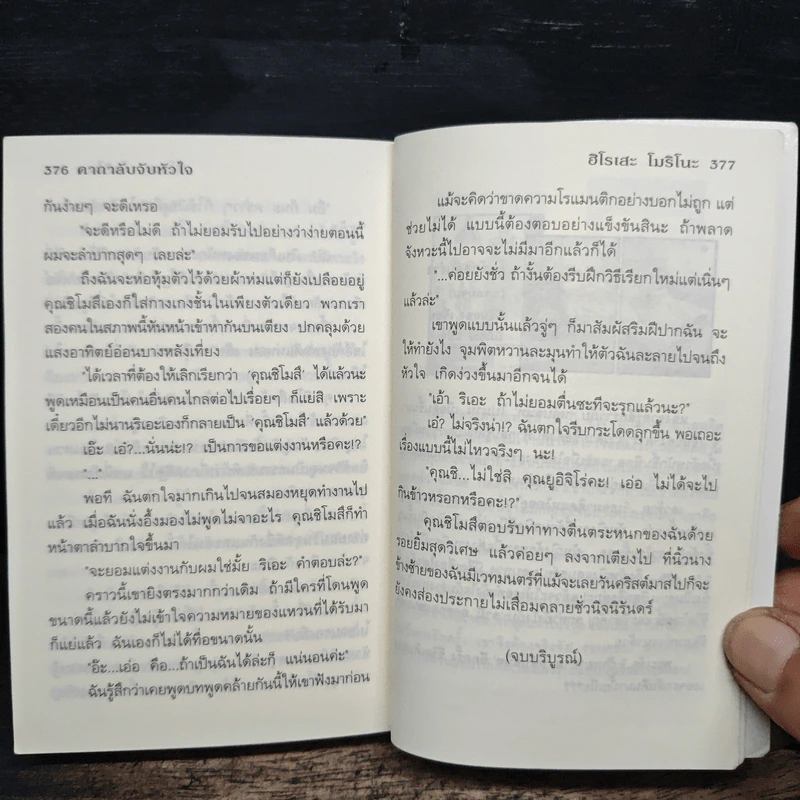 376 คาถาลับจับหัวใจ
กันง่ายๆ จะดีเหรอ
"จะดีหรือไม่ดี ถ้าไม่ยอมรับไปอย่างว่าง่ายตอนนี้
ผมจะลำบากสุดๆ เลยล่ะ"
ถึงฉันจะห่อหุ้มตัวไว้ด้วยผ้าห่มแต่ก็ยังเปลือยอยู่
คุณชิโมสึเองก็ใส่กางเกงชั้นในเพียงตัวเดียว พวกเรา
สองคนในสภาพนี้หันหน้าเข้าหากันบนเตียง ปกคลุมด้วย
แสงอาทิตย์อ่อนบางหลังเที่ยง
"ได้เวลาที่ต้องให้เลิกเรียกว่า 'คุณชิโมสึ' ได้แล้วนะ
พูดเหมือนเป็นคนอื่นคนไกลต่อไปเรื่อยๆ ก็แย่สิ เพราะ
เดี๋ยวอีกไม่นานริเอะเองก็กลายเป็น 'คุณชิโมสึ' แล้วด้วย"
เอ๊ะ เอ๋?...นั่นน่ะ!? เป็นการขอแต่งงานหรือคะ!?
"..."
พอที ฉันตกใจมากเกินไปจนสมองหยุดทำงานไป
แล้ว เมื่อฉันนั่งอึ้งมองไม่พูดไม่จาอะไร คุณชิโมสึก็ทำ
หน้าตาลำบากใจขึ้นมา
"จะยอมแต่งงานกับผมใช่มั้ย ริเอะ คำตอบล่ะ?"
คราวนี้เขายิงตรงมากกว่าเดิม ถ้ามีใครที่โดนพูด
ขนาดนี้แล้วยังไม่เข้าใจความหมายของแหวนที่ได้รับมา
ก็แย่แล้ว ฉันเองก็ไม่ได้ทื่อขนาดนั้น
"อ๊ะ...เอ่อ คือ...ถ้าเป็นฉันได้ล่ะก็ แน่นอนค่ะ"
ฉันรู้สึกว่าเคยพูดบทพูดคล้ายกันนี้ให้เขาฟังมาก่อน
ฮิโรเสะ โมริโนะ 377
แม้จะคิดว่าขาดความโรแมนติกอย่างบอกไม่ถูก แต่
ช่วยไม่ได้ แบบนี้ต้องตอบอย่างแข็งขันสินะ ถ้าพลาด
จังหวะนี้ไปอาจจะไม่มีมาอีกแล้วก็ได้
"...ค่อยยังชั่ว ถ้างั้นต้องรีบฝึกวิธีเรียกใหม่แต่เนิ่นๆ
แล้วล่ะ"
เขาพูดแบบนั้นแล้วจู่ๆ ก็มาสัมผัสริมฝีปากฉัน จะ
ให้ทำยังไง จุมพิตหวานละมุนทำให้ตัวฉันละลายไปจนถึง
หัวใจ เกิดง่วงขึ้นมาอีกจนได้
"เอ้า ริเอะ ถ้าไม่ยอมตื่นซะทีจะรุกแล้วนะ?"
เอ๋? ไม่จริงน่า!? ฉันตกใจรีบกระโดดลุกขึ้น พอเถอะ
เรื่องแบบนี้ไม่ไหวจริงๆ นะ!
"คุณชิ...ไม่ใช่สิ คุณยูอิจิโร่คะ! เอ่อ ไม่ได้จะไป
กินข้าวหรอกหรือคะ!?"
คุณชิโมสึตอบรับท่าทางตื่นตระหนกของฉันด้วย
รอยยิ้มสุดวิเศษ แล้วค่อยๆ ลงจากเตียงไป ที่นิ้วนาง
ข้างซ้ายของฉันมีเวทมนตร์ที่แม้จะเลยวันคริสต์มาสไปก็จะ
ยังคงส่องประกายไม่เสื่อมคลายชั่วนิจนิรันดร์
(จบบริบูรณ์)